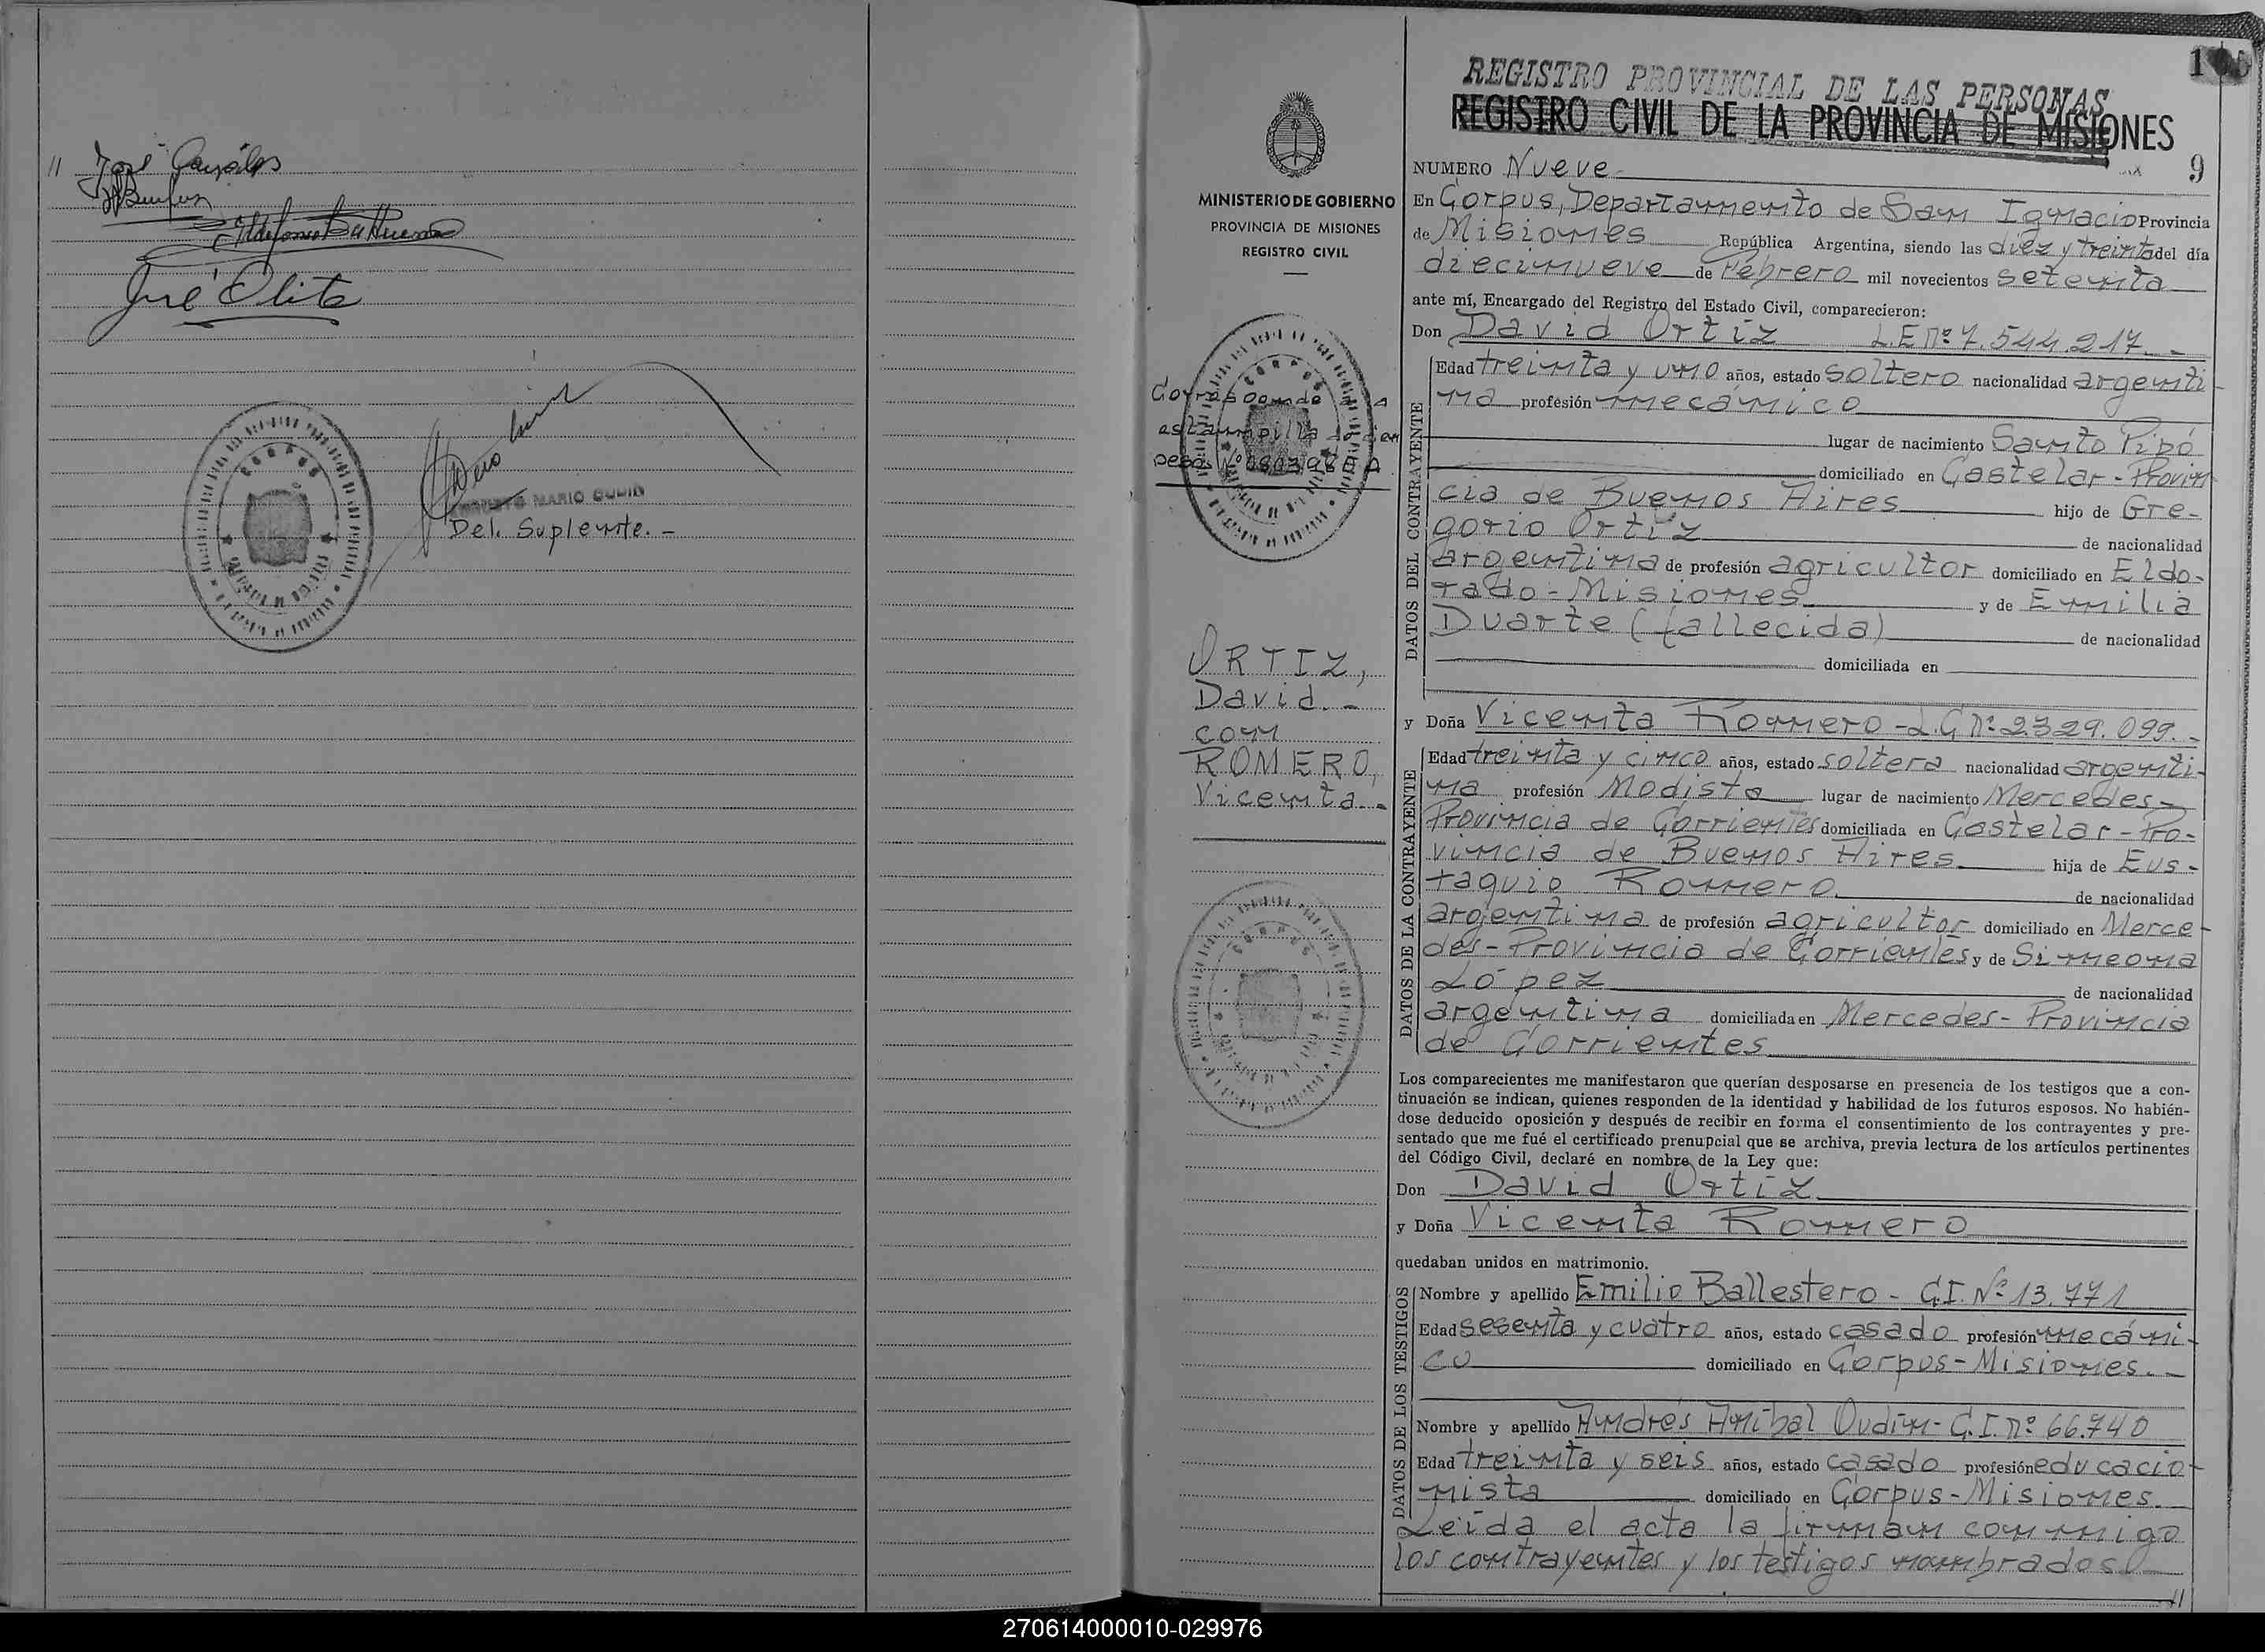 // José González
José Olita
MARIO OUDIN
Del. Suplente. -
MINISTERIO DE GOBIERNO
PROVINCIA DE MISIONES
REGISTRO CIVIL
Corresponde a la
estampilla de cien
pesos Nº
ORTIZ,
David. -
con
ROMERO,
Vicenta. -
REGISTRO PROVINCIAL DE LAS PERSONAS
REGISTRO CIVIL DE LA PROVINCIA DE MISIONES
9
NUMERO Nueve
En Corpus, Departamento de San Ignacio Provincia
de Misiones República Argentina, siendo las diez y treinta del día
diecinueve de Febrero mil novecientos setenta
ante mí, Encargado del Registro del Estado Civil, comparecieron:
Don David Ortiz L.E. Nº 7.544.217. -
DATOS DEL CONTRAYENTE
Edad treinta y uno años, estado soltero nacionalidad argenti-
na profesión mecánico
lugar de nacimiento Santo Pipó
domiciliado en Castelar - Provin
cia de Buenos Aires hijo de Gre-
gorio Ortiz de nacionalidad
argentina de profesión agricultor domiciliado en Eldo-
rado - Misiones y de Emilia
Duarte (fallecida) de nacionalidad
domiciliada en
y Doña Vicenta Romero - L.C. Nº 2.329.099. -
DATOS DE LA CONTRAYENTE
Edad treinta y cinco años, estado soltera nacionalidad argenti-
na profesión Modista lugar de nacimiento Mercedes -
Provincia de Corrientes domiciliada en Castelar - Pro-
vincia de Buenos Aires hija de Eus-
taquio Romero de nacionalidad
argentina de profesión agricultor domiciliado en Merce-
des - Provincia de Corrientes y de Simeona
López de nacionalidad
argentina domiciliada en Mercedes - Provincia
de Corrientes
Los comparecientes me manifestaron que querían desposarse en presencia de los testigos que a con-
tinuación se indican, quienes responden de la identidad y habilidad de los futuros esposos. No habién-
dose deducido oposición y después de recibir en forma el consentimiento de los contrayentes y pre-
sentado que me fué el certificado prenupcial que se archiva, previa lectura de los artículos pertinentes
del Código Civil, declaré en nombre de la Ley que:
Don David Ortiz
y Doña Vicenta Romero
quedaban unidos en matrimonio.
DATOS DE LOS TESTIGOS
Nombre y apellido Emilio Ballestero - C.I. Nº 13.771
Edad sesenta y cuatro años, estado casado profesión mecáni-
co domiciliado en Corpus - Misiones. -
Nombre y apellido Andrés Anibal Oudin - C.I. Nº 66.740
Edad treinta y seis años, estado casado profesión educacio-
nista domiciliado en Corpus - Misiones.
Leída el acta la firman conmigo
los contrayentes y los testigos nombrados
//
270614000010-029976